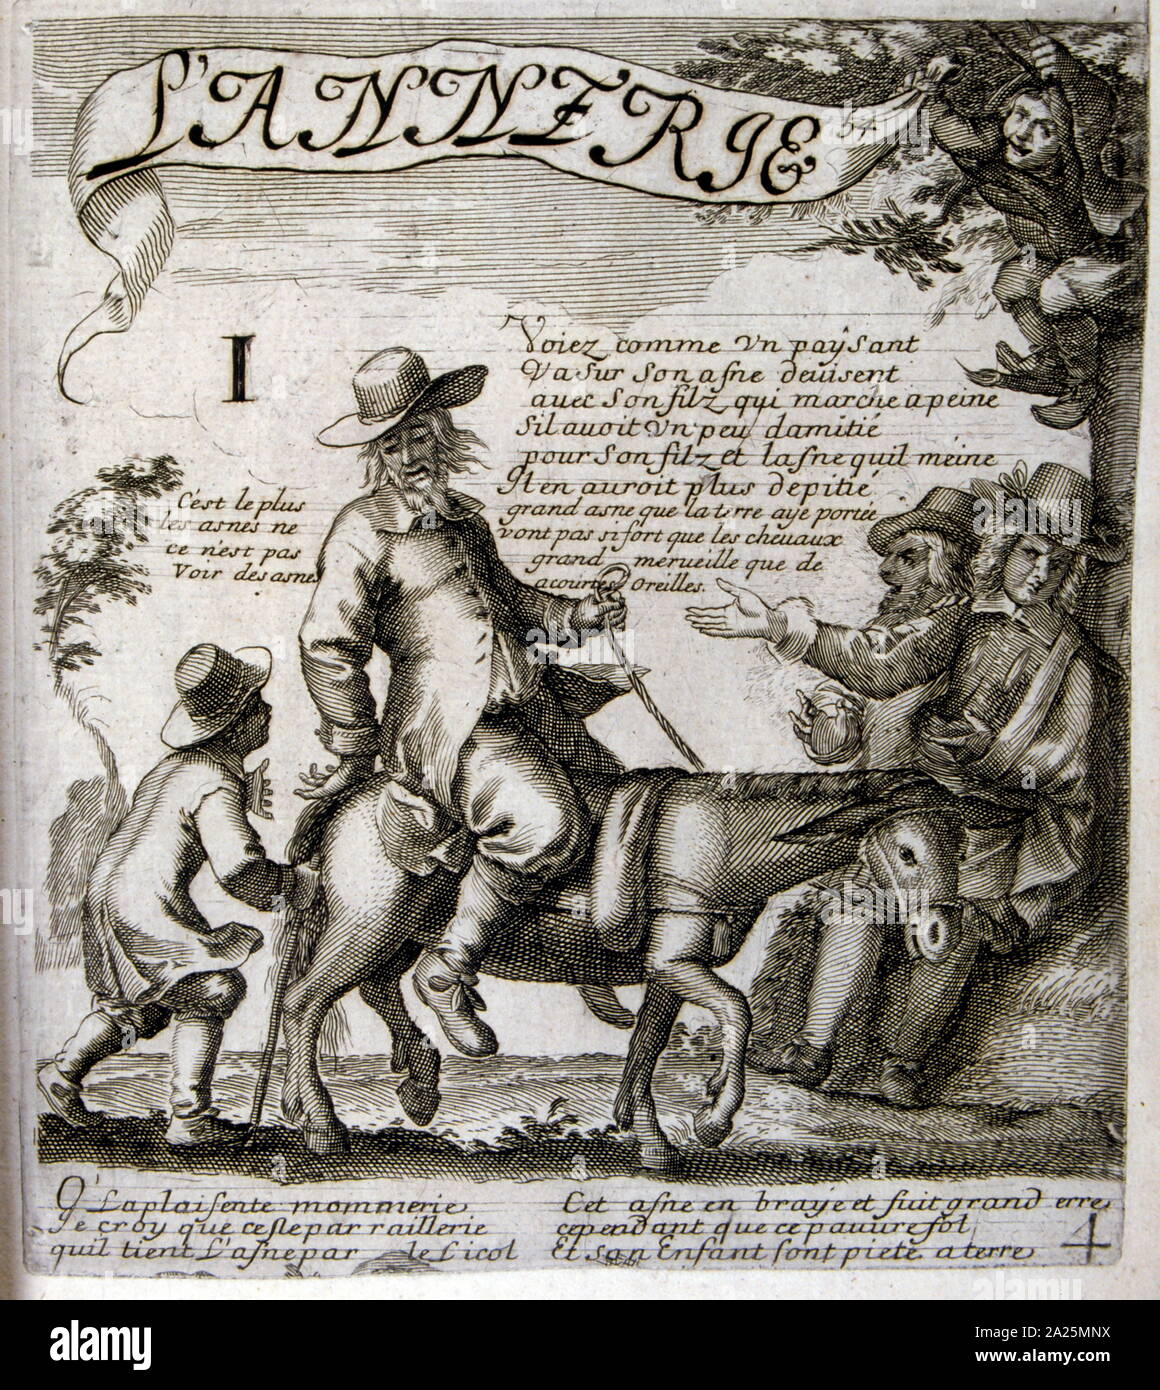 L'ANNERIE
54
I
Voiez comme Vn paÿsant
Va sur son asne deuisent
auec son filz qui marche a peine
sil auoit Vn peu damitié
pour son filz et lasne quil méine
Il en auroit plus de pitié
grand asne que la terre aye portée
vont pas si fort que les cheuaux
grand merueille que de
acourtes oreilles.
C'est le plus
les asnes ne
ce n'est pas
Voir des asnes
O' La plaisente mommerie
Je croy que cest par raillerie
quil tient L'asne par le Licol
Cet asne en braye et suit grand erre
cependant que ce pauure fol
Et son Enfant sont piete a terre
4
alamy
Image ID: 2A25MNX
www.alamy.com